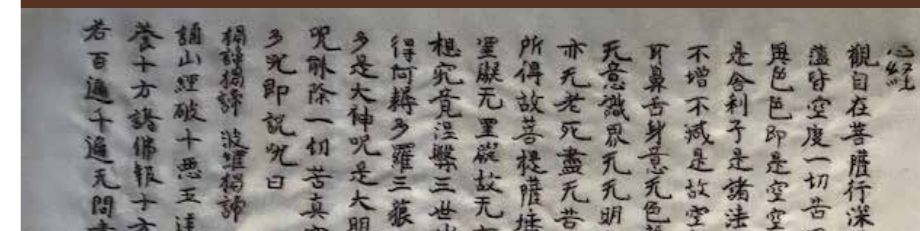 心经
觀自在菩薩行深
蘊皆空度一切苦
異色色即是空空
是舍利子是諸法
不增不减是故空
耳鼻舌身意无色
无意識界无无明
亦无老死盡无苦
所得故菩提薩埵
罣礙无罣礙故无
想究竟涅槃三世
得阿耨多羅三藐
多是大神咒是大明
咒能除一切苦真
多咒即說咒曰
揭諦揭諦 波羅揭諦
誦此經破十惡五逆
養十方諸佛報十方
若百遍千遍无問